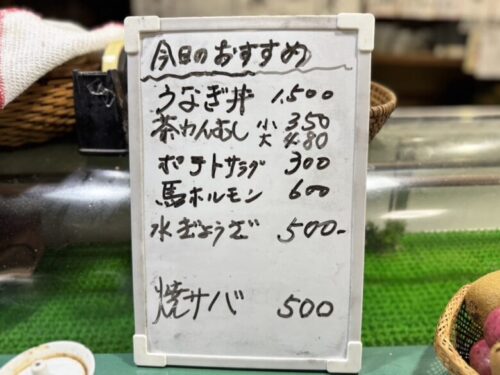 今日のおすすめ
うなぎ丼 1,500
茶わんむし 小 350
大 480
ポテトサラダ 300
馬ホルモン 600
水ぎょうざ 500-
焼サバ 500